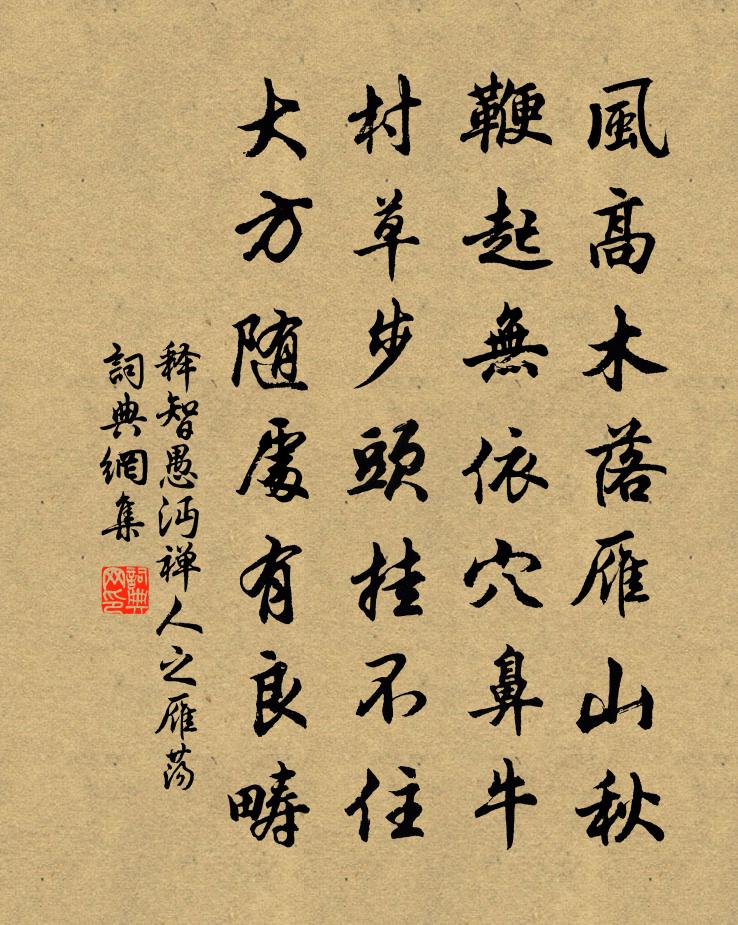 風高木落雁山秋
鞭起無依穴鼻牛
村草步頭挂不住
大方随處有良疇
释智愚沔禅人之雁蕩
詞典網集
詞典网印